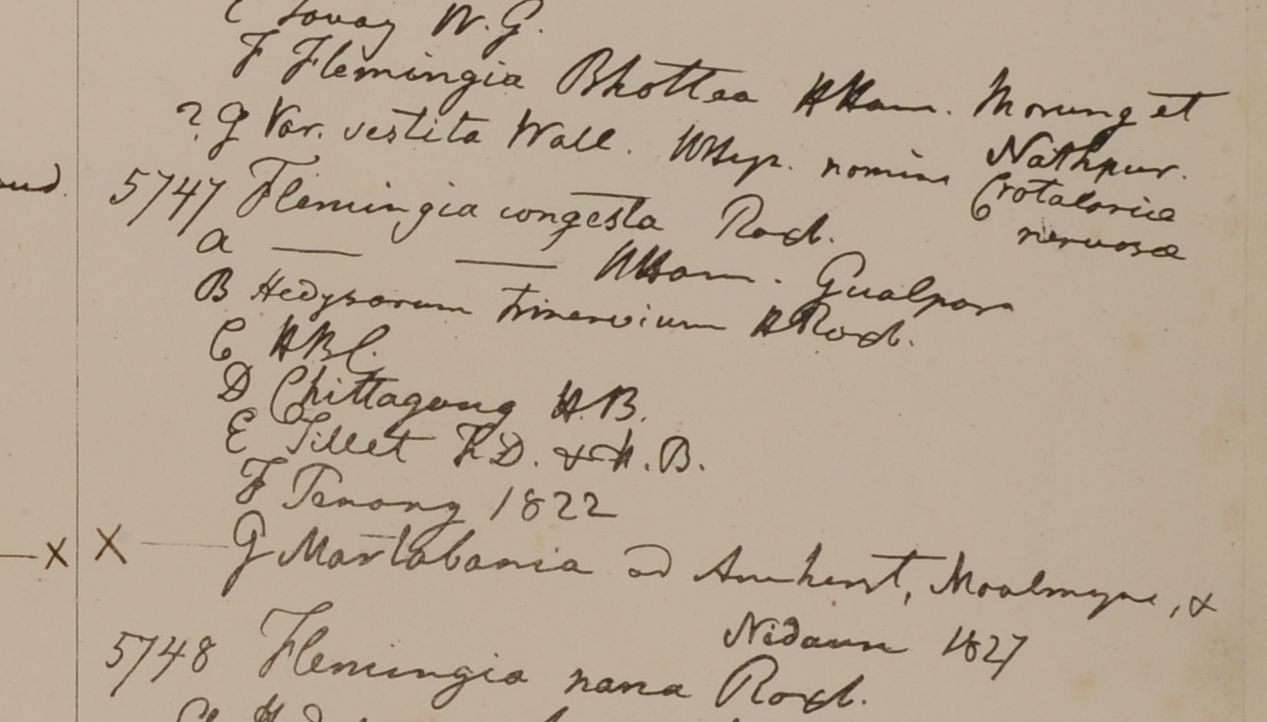 E Tavoy W.G.
F Flemingia Bhottea HHam. Morung et
Nathpur.
? G Var. vestita Wall. HHeyn. nomine Crotalariæ
nervosæ
5747 Flemingia congesta Roxb.
a — — HHam. Gualpara
B Hedysarum trinervium HRoxb.
C HBC.
D Chittagong H.B.
E Sillet F.D. & H.B.
F Penang 1822
X X — G Martabania ad Amherst, Moalmyne, &
Nidaun 1827
5748 Flemingia nana Roxb.